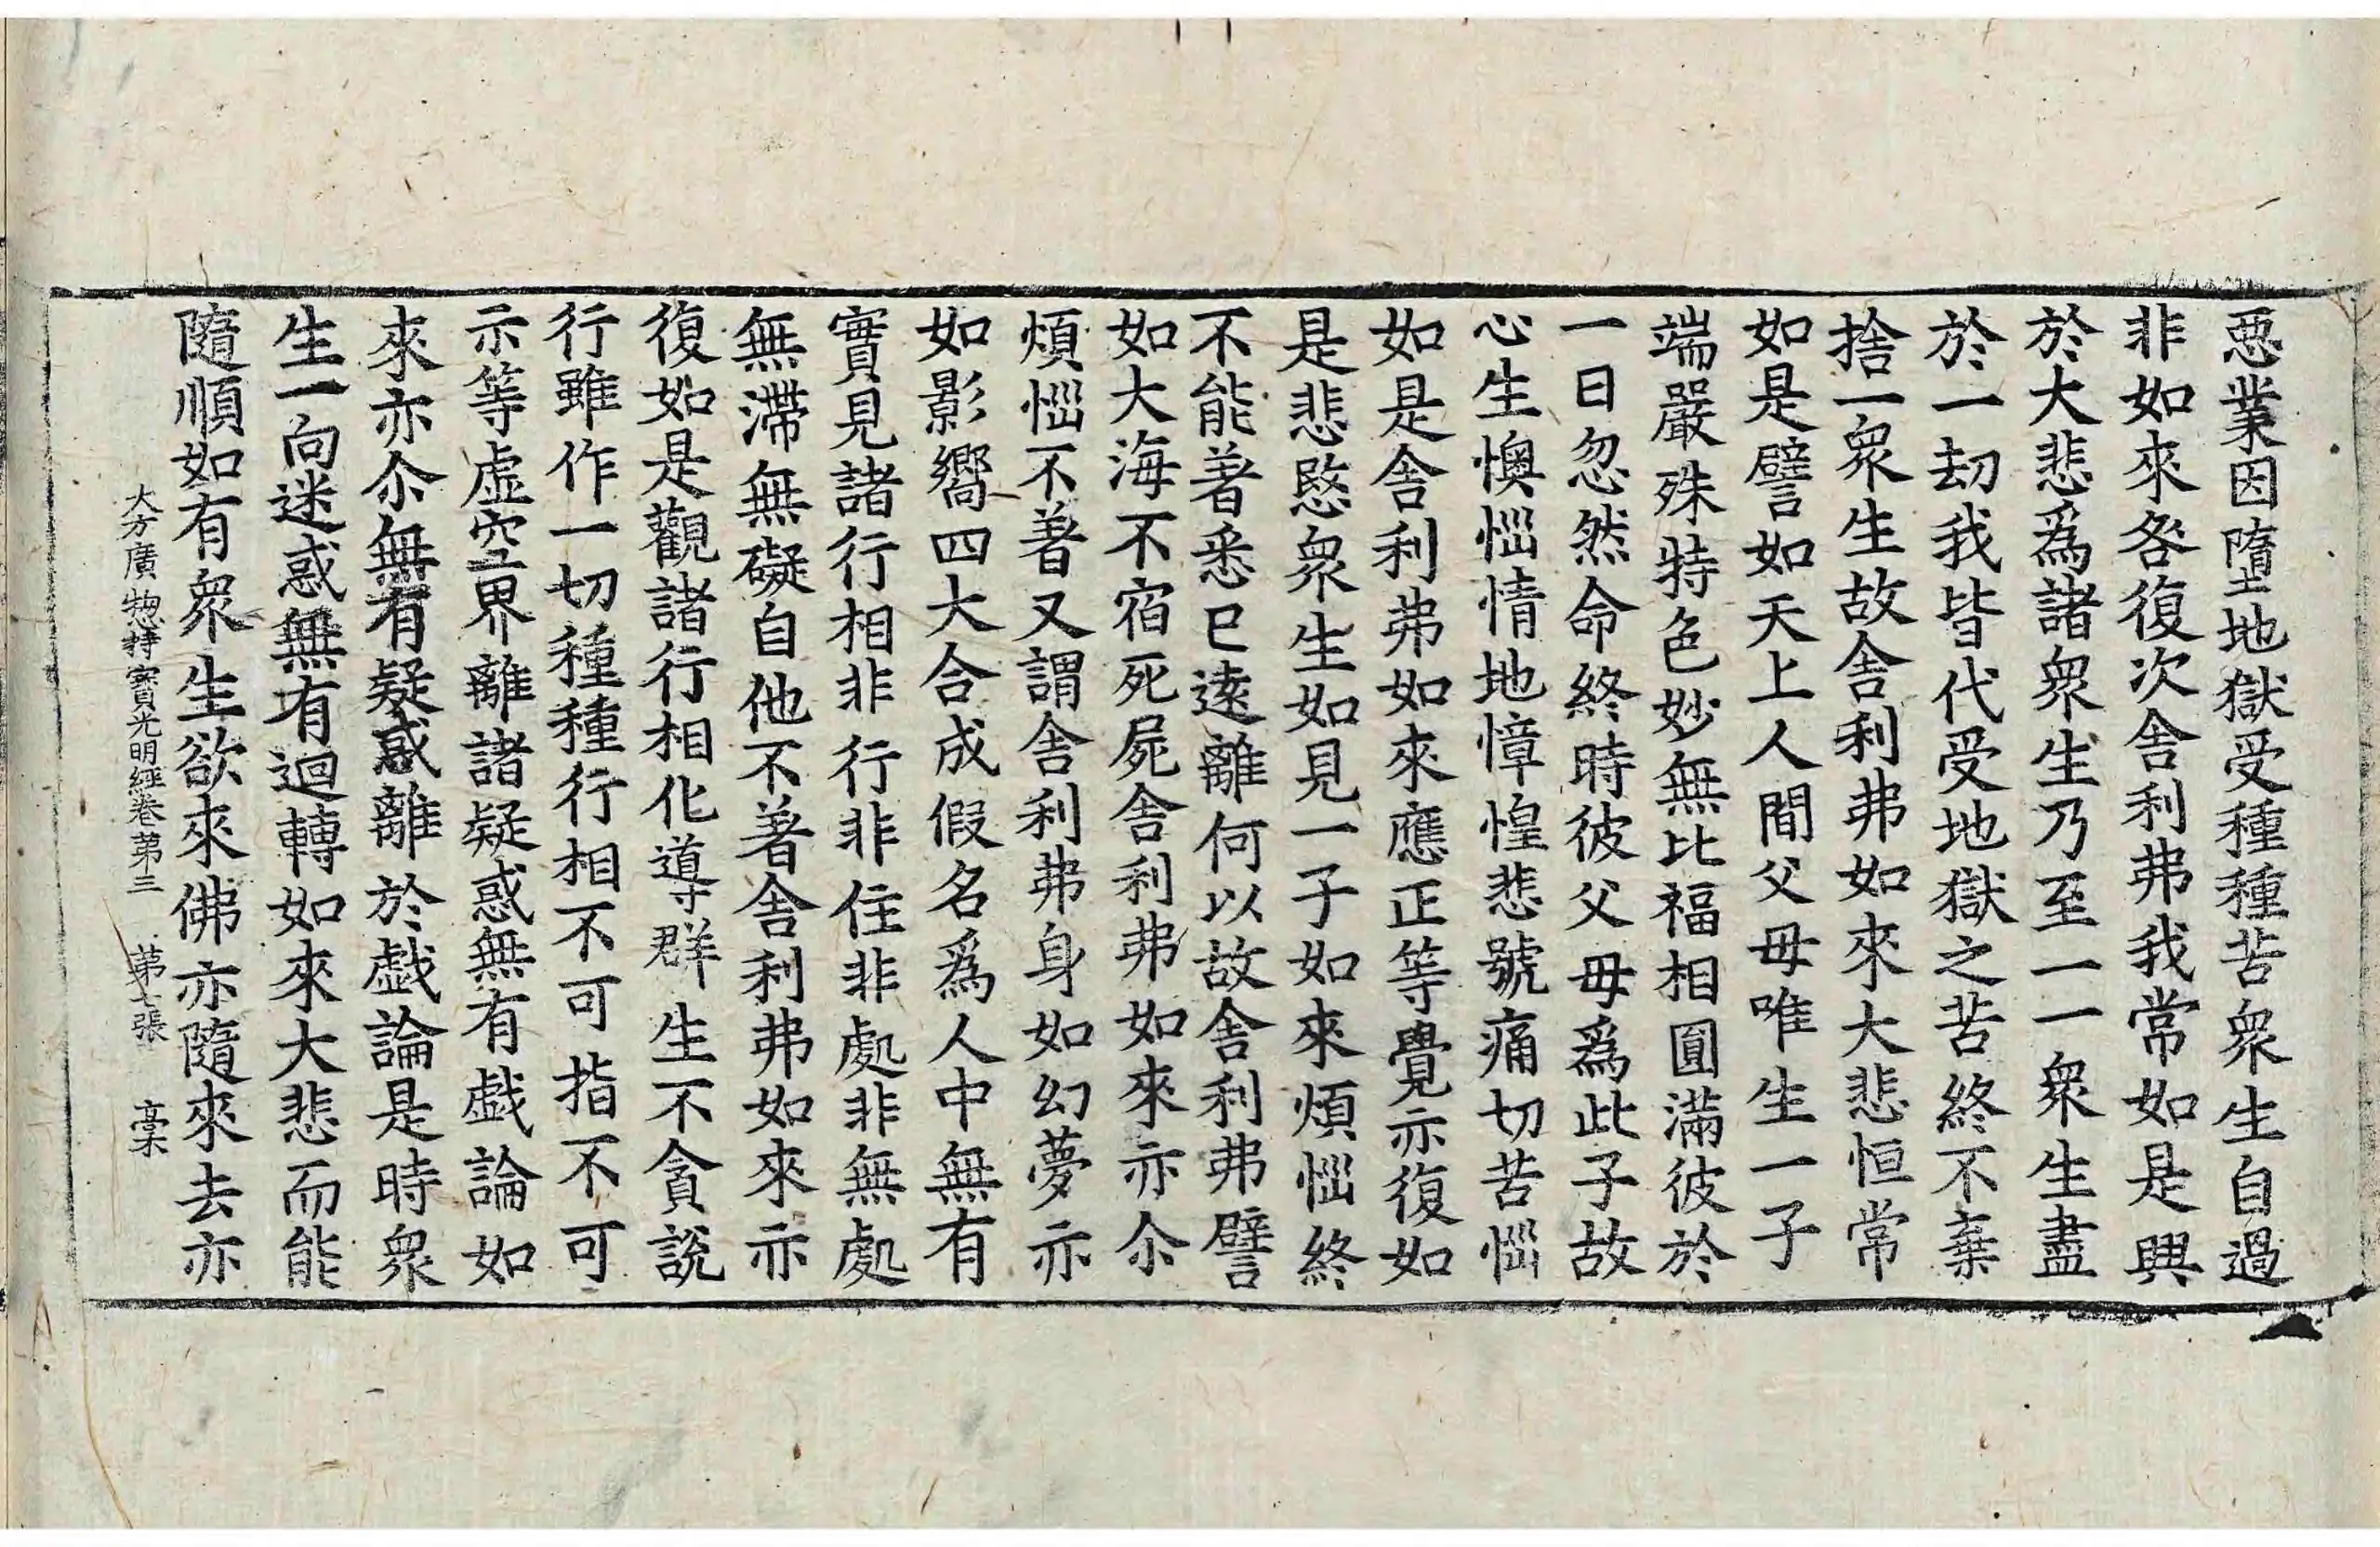 惡業因墮地獄受種種苦衆生自過
非如來咎復次舍利弗我常如是興
於大悲爲諸衆生乃至一一衆生盡
於一劫我皆代受地獄之苦終不棄
捨一衆生故舍利弗如來大悲恒常
如是譬如天上人間父母唯生一子
端嚴殊特色妙無比福相圓滿彼於
一日忽然命終時彼父母爲此子故
心生懊惱情地慞惶悲號痛切苦惱
如是舍利弗如來應正等覺亦復如
是悲愍衆生如見一子如來煩惱終
不能著悉已遠離何以故舍利弗譬
如大海不宿死屍舍利弗如來亦尒
煩惱不著又謂舍利弗身如幻夢亦
如影嚮四大合成假名爲人中無有
實見諸行相非行非住非處非無處
無滯無礙自他不著舍利弗如來亦
復如是觀諸行相化導群生不貪說
行雖作一切種種行相不可指不可
示等虛空界離諸疑惑無有戱論如
來亦尒無有疑惑離於戱論是時衆
生一向迷惑無有迴轉如來大悲而能
隨順如有衆生欲來佛亦隨來去亦
大方廣惣持寶光明經卷第三 第七張 槀